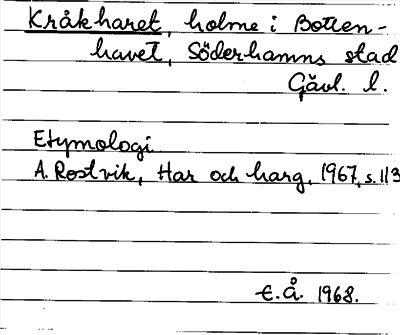 Kråkharet, holme i Botten-
havet, Söderhamns stad
Gävl. l.
Etymologi
A. Rostvik, Har och harg, 1967, s. 113
E. Å. 1968.